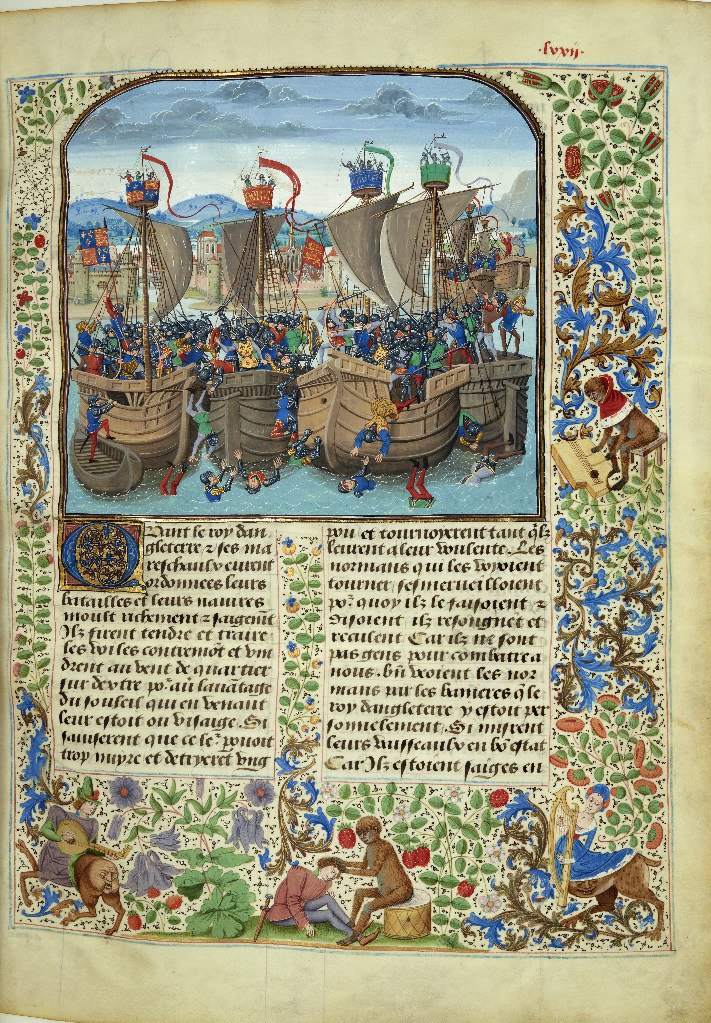 .lxxii.
Quant le roy dan
gleterre ⁊ ses ma
reschaulx eurent
ordonnees leurs
batailles et leurs nauires
moult richement ⁊ saigemt̄
Ilz firent tendre et traire
les voiles contremōt et vin
drent au vent de quartier
sur dextre por auoir lauātage
du souleil qui en venant
leur estoit ou visaige. Si
sauiserent que ce les pouoit
trop nuyre et detryerēt vng
pou et tournoyerent tant qlz
leurent a leur voulente. Les
normans qui les veoient
tourner sesmerueilloient
por quoy ilz le faisoient ⁊
disoient ilz resongnēt et
reculent Car ilz ne sont
pas gens pour combatre a
nous. bn̄ veoient les nor
mans par les banieres q̄ le
roy dangleterre y estoit per
sonnelement. Si misrent
leurs vaisseaulx en bō estat
Car Ilz estoient saiges en